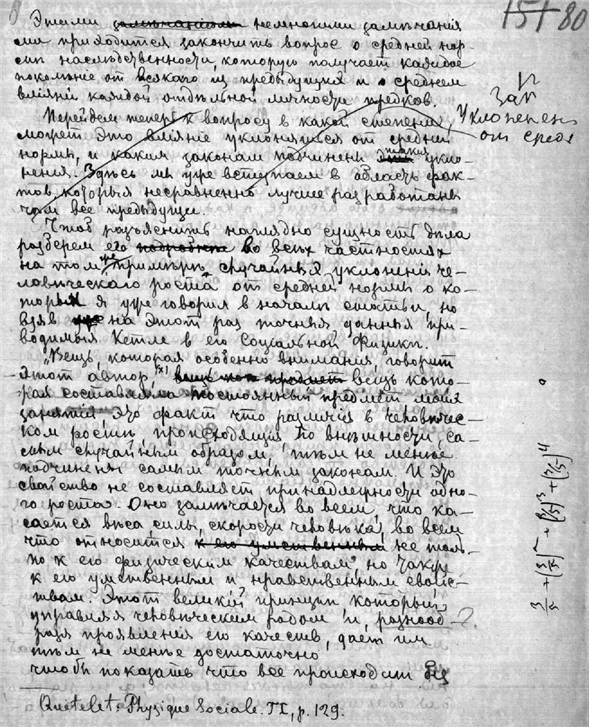 8
15+80
Этими замѣчаніями немногими замѣчанія
ми приходится закончить вопросъ о средней нор-
мѣ наслѣдственности которую получаетъ каждое
поколѣніе отъ всякаго изъ предыдущихъ и о среднем
вліяніи каждой отдѣльной личности предковъ.
Перейдем теперь къ вопросу въ какой степени,
можетъ это вліяніе уклоняться отъ средней
нормы, и каким законам подчинены эти такія укло-
ненія. Здѣсь мы уже вступаем в область фак-
тов которыя несравненно лучше разработаны
чѣм все предыдущее.
Зак
Уклонен
от сред
Чтоб разъяснить наглядно сущность дѣла
разберем его подробнѣе во всѣх частностях
на том же примѣрѣ случайных уклоненій че-
ловѣческаго роста от средней нормы о ко-
торых я уже говорил в началѣ статьи, но
взяв уже на этот раз точныя данныя при-
водимыя Кетле в его Соціальной Физикѣ.
„Вещь, которая особенно вниманія, говорит
этот автор, (х) вещь кото-
рая составляла постоянный предмет моих
занятій это факт что различія в человѣчес-
ком ростѣ, происходящія по внѣшности, са-
мым случайным образом, тѣм не менѣе
подчинены самым точным законам. И это
свойство не составляет принадлежности одно-
го роста. Оно замѣчается во всем, что ка-
сается вѣса силы, скорости человѣка, во всем
что относится к его умственным не толь-
ко к его физическим качествам, но также
к его умственным и нравственным свойс-
твам. Этот великій принцип который
управляя человѣческим родом и, разнооб-
разя проявленія его качеств, дает им
тѣм не менѣе достаточно
чтобы показать что все происходит без
Quetelet. Physique Sociale. TI, p. 129.
3/5 + (3/5)² + (3/5)³ + (3/5)⁴